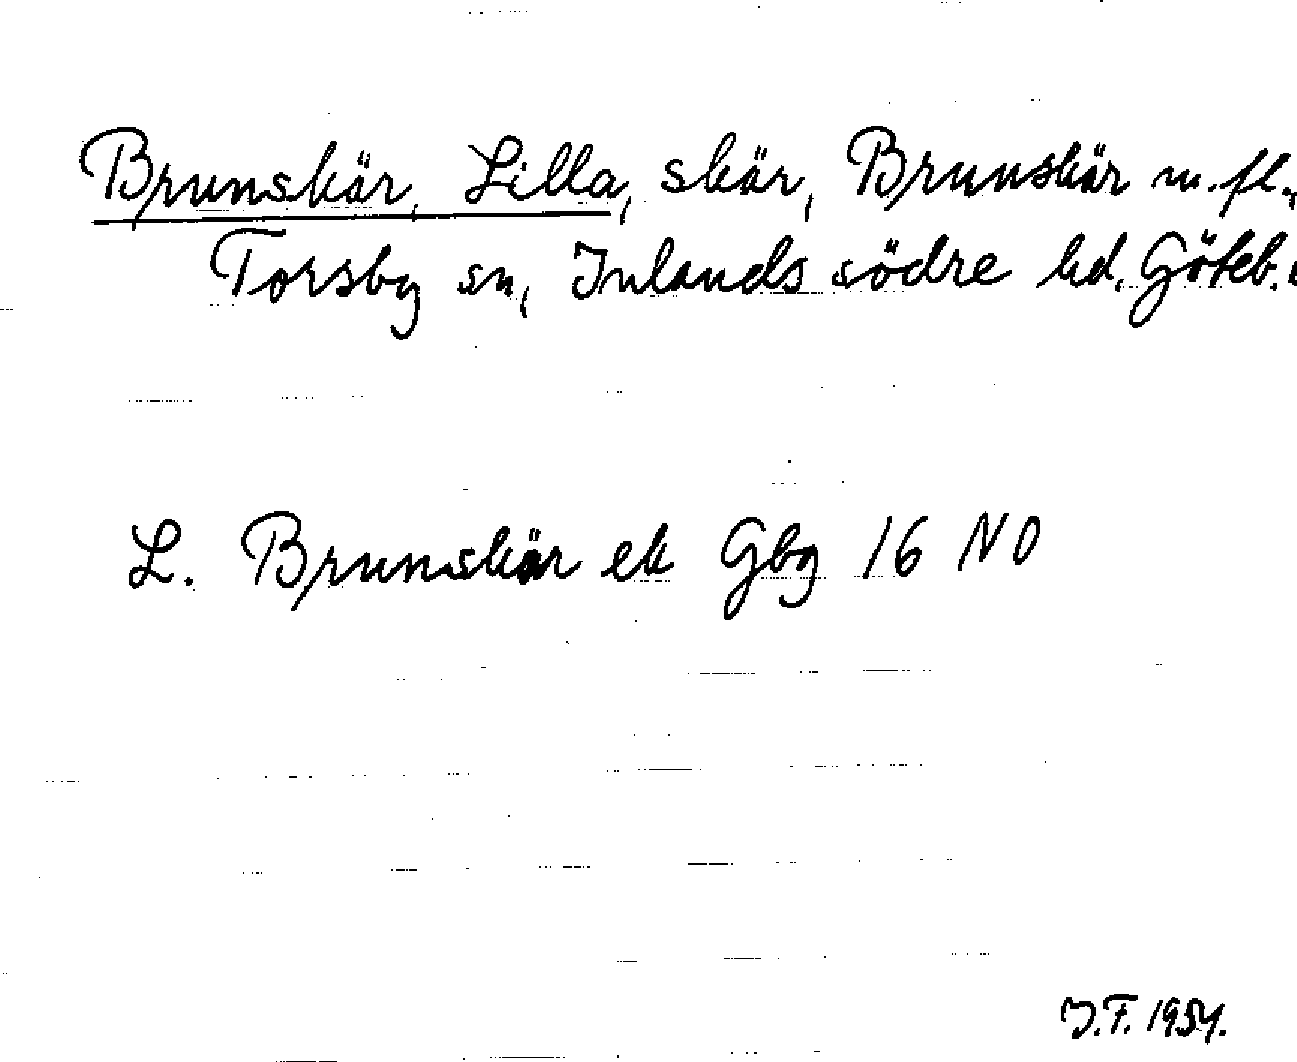 Brunskär, Lilla, skär, Brunskär m.fl.,
Torsby sn, Inlands södre hd, Göteb.
L. Brunskär ek Gbg 16 NO
J.F. 1954.